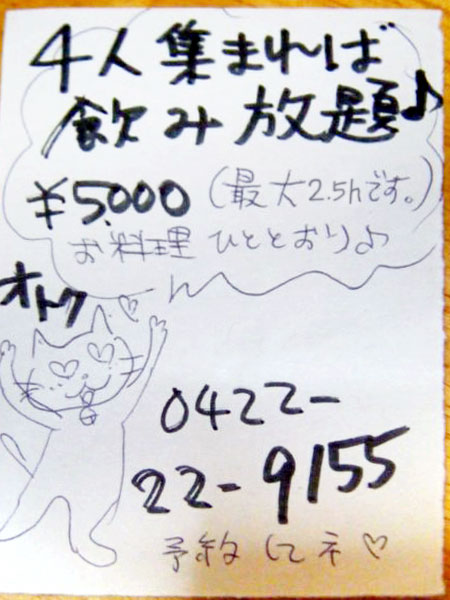 4人集まれば
飲み放題♪
¥5,000（最大2.5hです。）
お料理 ひととおり♪
オトク
0422-
22-9155
予約してネ♡